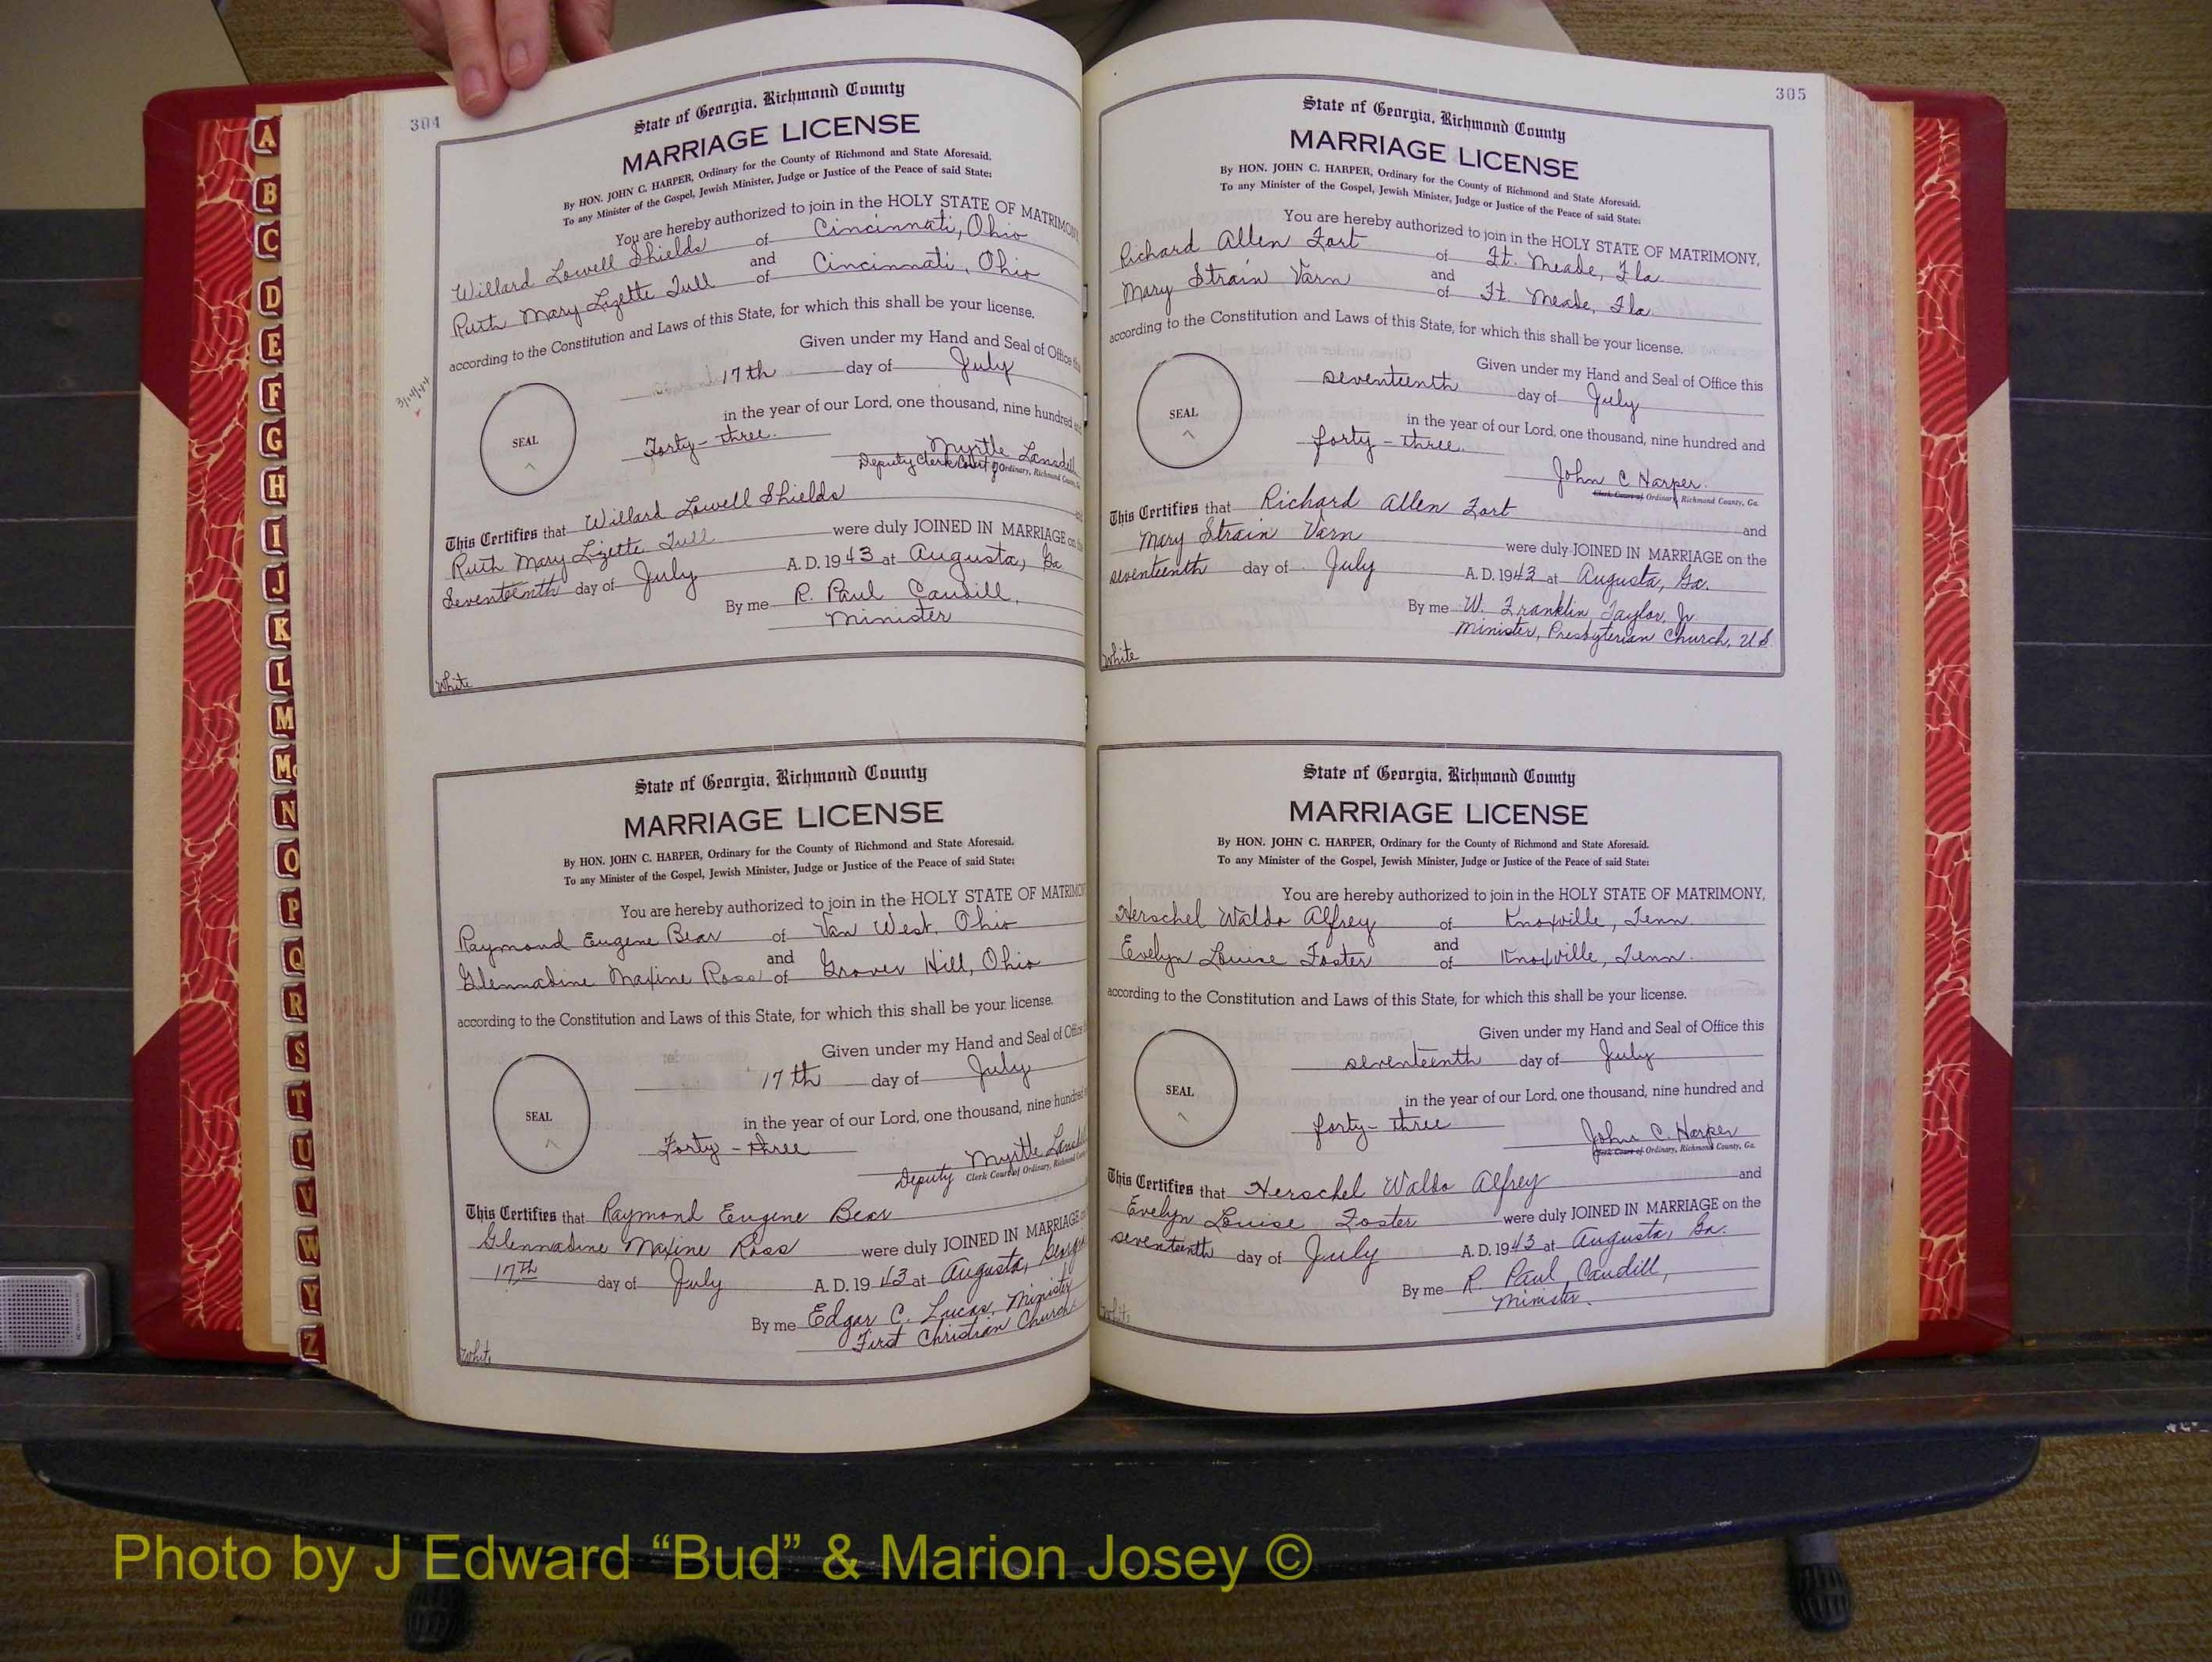 304
State of Georgia, Richmond County
MARRIAGE LICENSE
By HON. JOHN C. HARPER, Ordinary for the County of Richmond and State Aforesaid.
To any Minister of the Gospel, Jewish Minister, Judge or Justice of the Peace of said State:
You are hereby authorized to join in the HOLY STATE OF MATRIMONY
Willard Lowell Shields of Cincinnati, Ohio
and
Ruth Mary Lizette Tull of Cincinnati, Ohio
according to the Constitution and Laws of this State, for which this shall be your license.
Given under my Hand and Seal of Office
17th day of July
in the year of our Lord, one thousand, nine hundred
SEAL
Forty-three.
Myrtle Lansdell
Deputy Clerk Court of Ordinary, Richmond County
This Certifies that Willard Lowell Shields
Ruth Mary Lizette Tull were duly JOINED IN MARRIAGE on
Seventeenth day of July A. D. 1943 at Augusta, Ga
By me R. Paul Caudill,
Minister
White
State of Georgia, Richmond County
MARRIAGE LICENSE
By HON. JOHN C. HARPER, Ordinary for the County of Richmond and State Aforesaid.
To any Minister of the Gospel, Jewish Minister, Judge or Justice of the Peace of said State:
You are hereby authorized to join in the HOLY STATE OF MATRIMO
Raymond Eugene Bear of Van West, Ohio
and
Glennadine Maxine Ross of Grover Hill, Ohio
according to the Constitution and Laws of this State, for which this shall be your license.
Given under my Hand and Seal of Office
17th day of July
in the year of our Lord, one thousand, nine hundred
SEAL
Forty-three
Myrtle Lansd
Deputy Clerk Court of Ordinary, Richmond County
This Certifies that Raymond Eugene Bear
Glennadine Maxine Ross were duly JOINED IN MARRIAGE
17th day of July A. D. 1943 at Augusta, Georgia
By me Edgar C. Lucas, Minister
First Christian Church
White
305
State of Georgia, Richmond County
MARRIAGE LICENSE
By HON. JOHN C. HARPER, Ordinary for the County of Richmond and State Aforesaid.
To any Minister of the Gospel, Jewish Minister, Judge or Justice of the Peace of said State:
You are hereby authorized to join in the HOLY STATE OF MATRIMONY,
Richard Allen Fort of Ft. Meade, Fla
and
Mary Strain Varn of Ft. Meade, Fla.
according to the Constitution and Laws of this State, for which this shall be your license.
Given under my Hand and Seal of Office this
seventeenth day of July
in the year of our Lord, one thousand, nine hundred and
SEAL
forty-three.
John C Harper.
Clerk Court of Ordinary, Richmond County, Ga.
This Certifies that Richard Allen Fort and
Mary Strain Varn were duly JOINED IN MARRIAGE on the
seventeenth day of July A. D. 1943 at Augusta, Ga.
By me W. Franklin Taylor, Jr
Minister, Presbyterian Church, US
White
State of Georgia, Richmond County
MARRIAGE LICENSE
By HON. JOHN C. HARPER, Ordinary for the County of Richmond and State Aforesaid.
To any Minister of the Gospel, Jewish Minister, Judge or Justice of the Peace of said State:
You are hereby authorized to join in the HOLY STATE OF MATRIMONY,
Herschel Waldo Alfrey of Knoxville, Tenn.
and
Evelyn Louise Foster of Knoxville, Tenn.
according to the Constitution and Laws of this State, for which this shall be your license.
Given under my Hand and Seal of Office this
seventeenth day of July
in the year of our Lord, one thousand, nine hundred and
SEAL
forty-three
John C. Harper
Clerk Court of Ordinary, Richmond County, Ga.
This Certifies that Herschel Waldo Alfrey and
Evelyn Louise Foster were duly JOINED IN MARRIAGE on the
seventeenth day of July A. D. 1943 at Augusta, Ga.
By me R. Paul Caudill,
Minister.
White
A
B
C
D
E
F
G
H
I
J
K
L
M
Mc
N
O
P
Q
R
S
T
U
V
W
Y
Z
Photo by J Edward “Bud” & Marion Josey ©